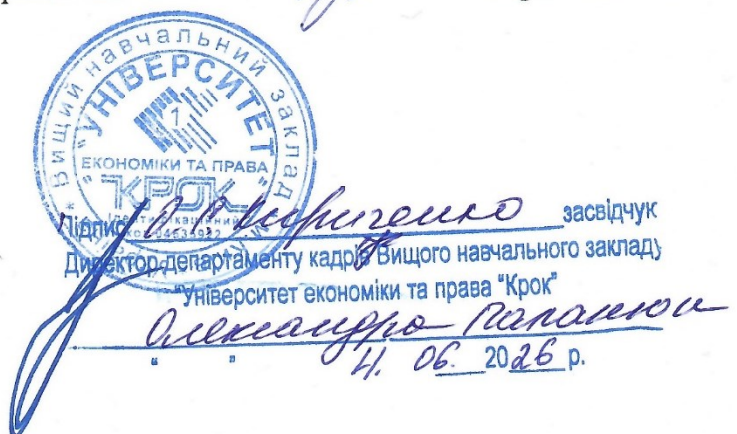 * Вищий навчальний заклад
"УНІВЕРСИТЕТ
1
ЕКОНОМІКИ ТА ПРАВА
"КРОК"
Ідентифікаційний
код 04634922
Підпис Кириченко засвідчук
Директор департаменту кадрів Вищого навчального закладу
"Університет економіки та права "Крок"
Олександра
" " 4. 06. 2026 р.